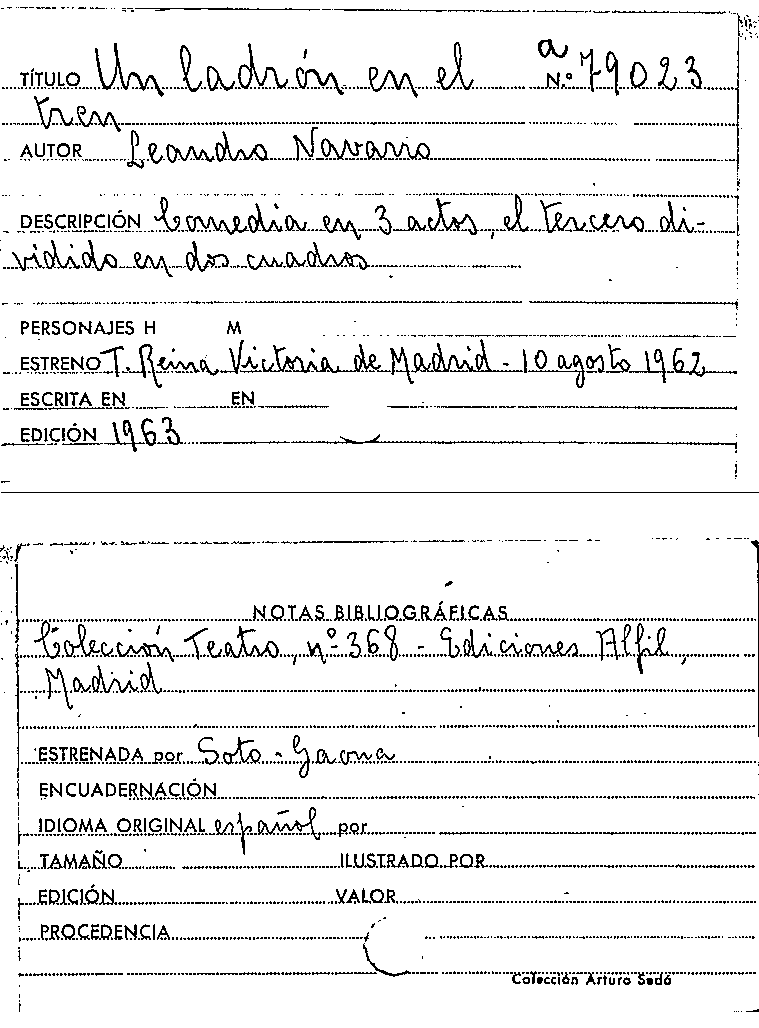 TÍTULO Un ladrón en el a N.º 79023
tren
AUTOR Leandro Navarro
DESCRIPCIÓN Comedia en 3 actos, el tercero di-
vidido en dos cuadros
PERSONAJES H M
ESTRENO T. Reina Victoria de Madrid - 10 agosto 1962
ESCRITA EN EN
EDICIÓN 1963
NOTAS BIBLIOGRÁFICAS
Colección Teatro, nº 368 - Ediciones Alfil,
Madrid
ESTRENADA por Soto - Gaona
ENCUADERNACIÓN
IDIOMA ORIGINAL español por
TAMAÑO ILUSTRADO POR
EDICIÓN VALOR
PROCEDENCIA
Colección Arturo Sedó